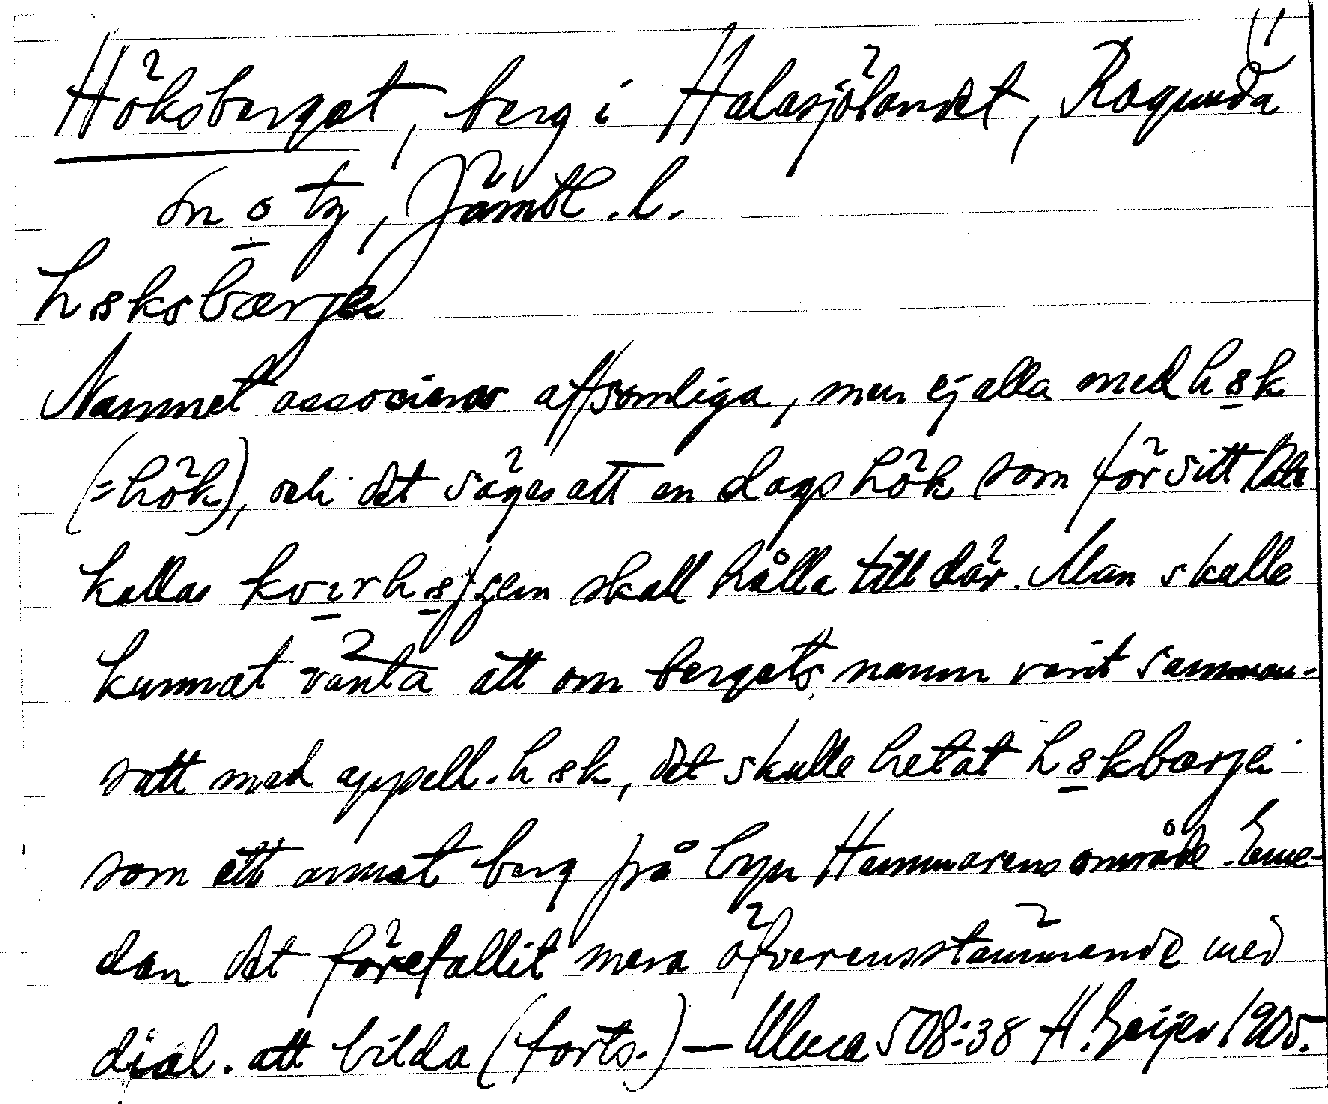 Höksberget, berg i Halasjölandet, Ragunda
sn o tg, Jämtl. l.
höksbærje
Namnet associeras af somliga, men ej alla med h8k
(=hök), och det säges att en slags hök som för sitt läte
kallas skall hålla till där. Man skulle
kunnat vänta att om bergets namn varit samman-
satt med appell. h8k, det skulle hetat h8kbærje
som ett annat berg på byn Hammarens område. Eme-
dan det förefallit mera öfverensstämmande med
dial. att bilda (forts.) — 508:38 H. Geijer 1905.